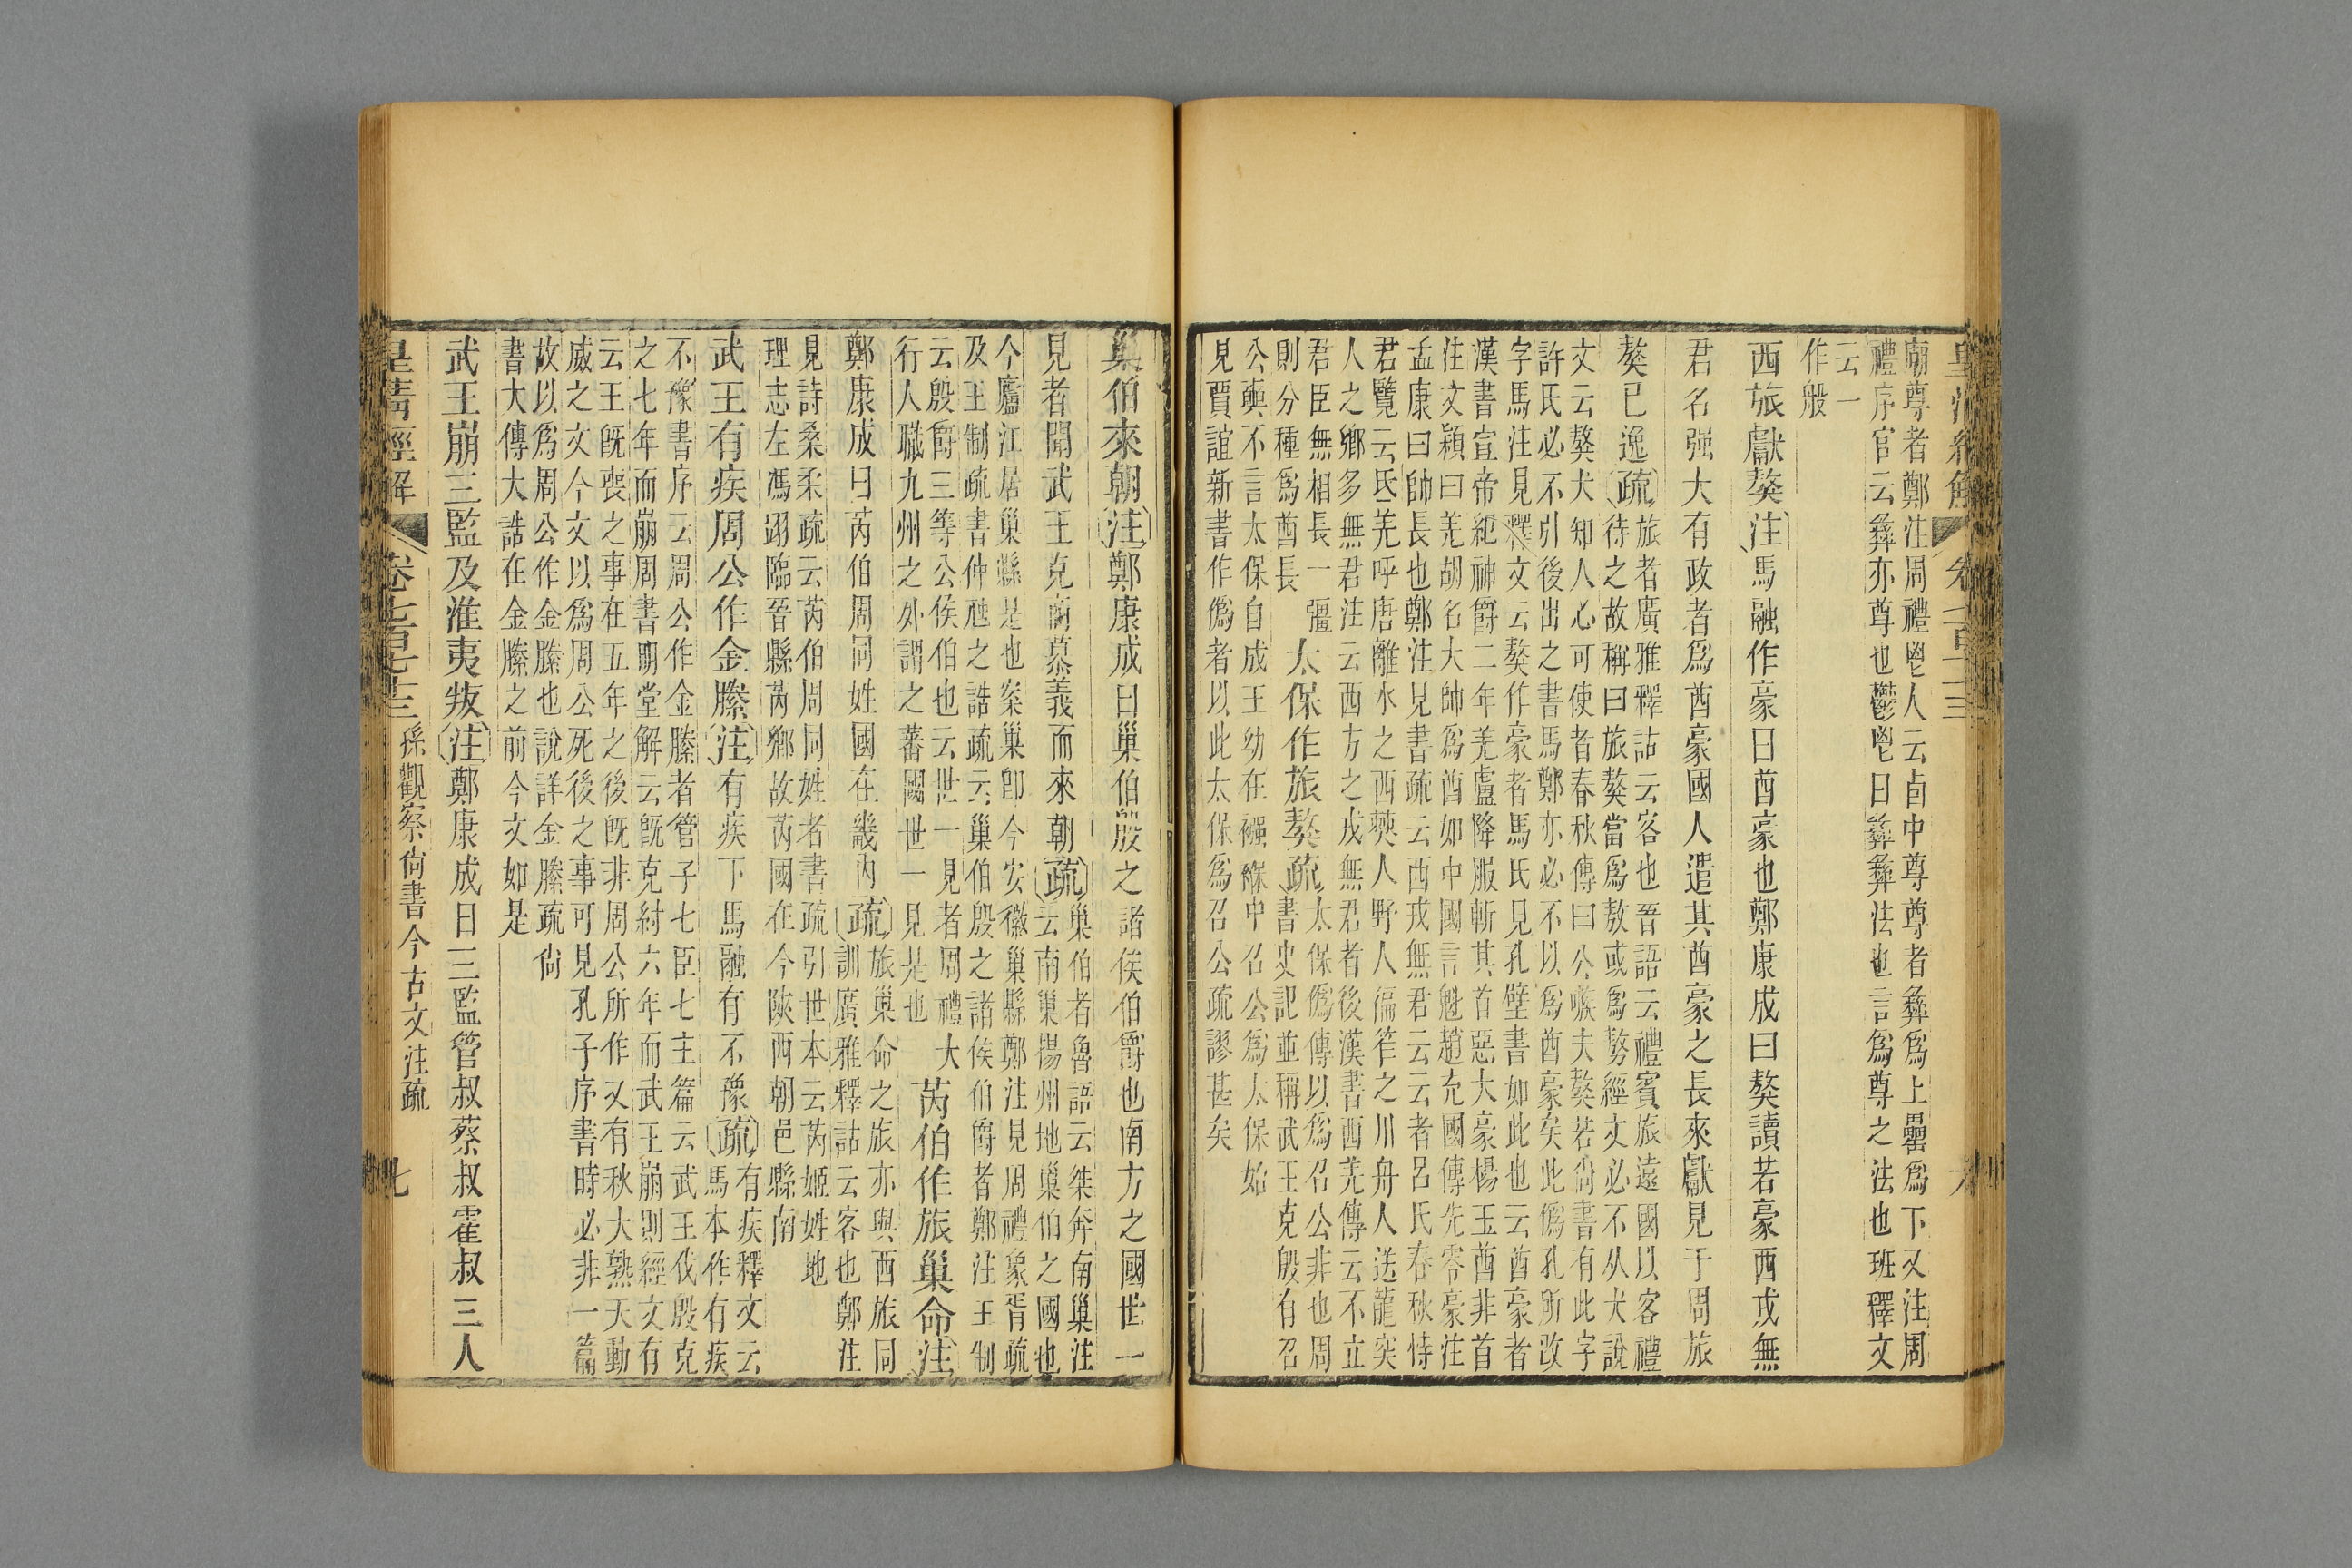 皇清經解
卷七百七十三
六
廟尊者鄭注周禮鬯人云卣中尊尊者彝爲上罍爲下又注周
禮序官云彝亦尊也鬱鬯曰彝彝法也言爲尊之法也班釋文
云一
作般
西旅獻獒注馬融作豪曰酋豪也鄭康成曰獒讀若豪西戎無
君名强大有政者爲酋豪國人遣其酋豪之長來獻見于周旅
獒已逸疏
旅者廣雅釋詁云客也晉語云禮賓旅遠國以客禮
待之故稱曰旅獒當爲敖或爲勢經文必不从犬說
文云獒犬知人心可使者春秋傳曰公嗾夫獒若尙書有此字
許氏必不引後出之書馬鄭亦必不以爲酋豪矣此僞孔所改
字馬注見釋文云獒作豪者馬氏見孔壁書如此也云酋豪者
漢書宣帝紀神爵二年羌虜降服斬其首惡大豪楊玉酋非首
注文穎曰羌胡名大帥爲酋如中國言魁趙充國傳先零豪注
孟康曰帥長也鄭注見書疏云西戎無君云云者呂氏春秋恃
君覽云氐羌呼唐離水之西僰人野人徧笮之川舟人送龍突
人之鄉多無君注云西方之戎無君者後漢書西羌傳云不立
君臣無相長一彊
則分種爲酋長
太保作旅獒疏
太保僞傳以爲召公非也周
書史記並稱武王克殷有召
公奭不言太保自成王幼在襁褓中召公爲太保始
見賈誼新書作僞者以此太保爲召公疏謬甚矣
巢伯來朝注鄭康成曰巢伯殷之諸侯伯爵也南方之國世一
見者聞武王克商慕義而來朝疏
巢伯者魯語云桀奔南巢注
云南巢揚州地巢伯之國也
今廬江居巢縣是也案巢卽今安徽巢縣鄭注見周禮象胥疏
及王制疏書仲虺之誥疏云巢伯殷之諸侯伯爵者鄭注王制
云殷爵三等公侯伯也云世一見者周禮大
行人職九州之外謂之蕃國世一見是也
芮伯作旅巢命注
鄭康成曰芮伯周同姓國在畿內疏
旅巢命之旅亦與西旅同
訓廣雅釋詁云客也鄭注
見詩桑柔疏云芮伯周同姓者書疏引世本云芮姬姓地
理志左馮翊臨晉縣芮鄉故芮國在今陝西朝邑縣南
武王有疾周公作金縢注有疾下馬融有不豫疏
有疾釋文云
馬本作有疾
不豫書序云周公作金縢者管子七臣七主篇云武王伐殷克
之七年而崩周書明堂解云旣克紂六年而武王崩則經文有
云王旣喪之事在五年之後旣非周公所作又有秋大熟天動
威之文今文以爲周公死後之事可見孔子序書時必非一篇
故以爲周公作金縢也說詳金縢疏尙
書大傳大誥在金縢之前今文如是
武王崩三監及淮夷叛注鄭康成曰三監管叔蔡叔霍叔三人
皇清經解
卷七百七十三
孫觀察尙書今古文注疏
七